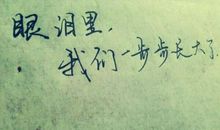 眼泪里，
我们一步步长大了